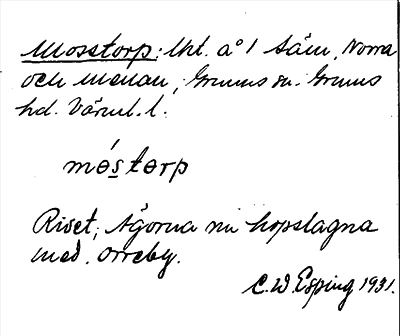 Mosstorp: lht. a° 1 säm, Norra
och menan, Grums sn. Grums
hd. Värml. l.
mɵ́stɵrp
Riset; Ägorna nu hopslagna
med. Orreby.
C. W. Esping 1931.